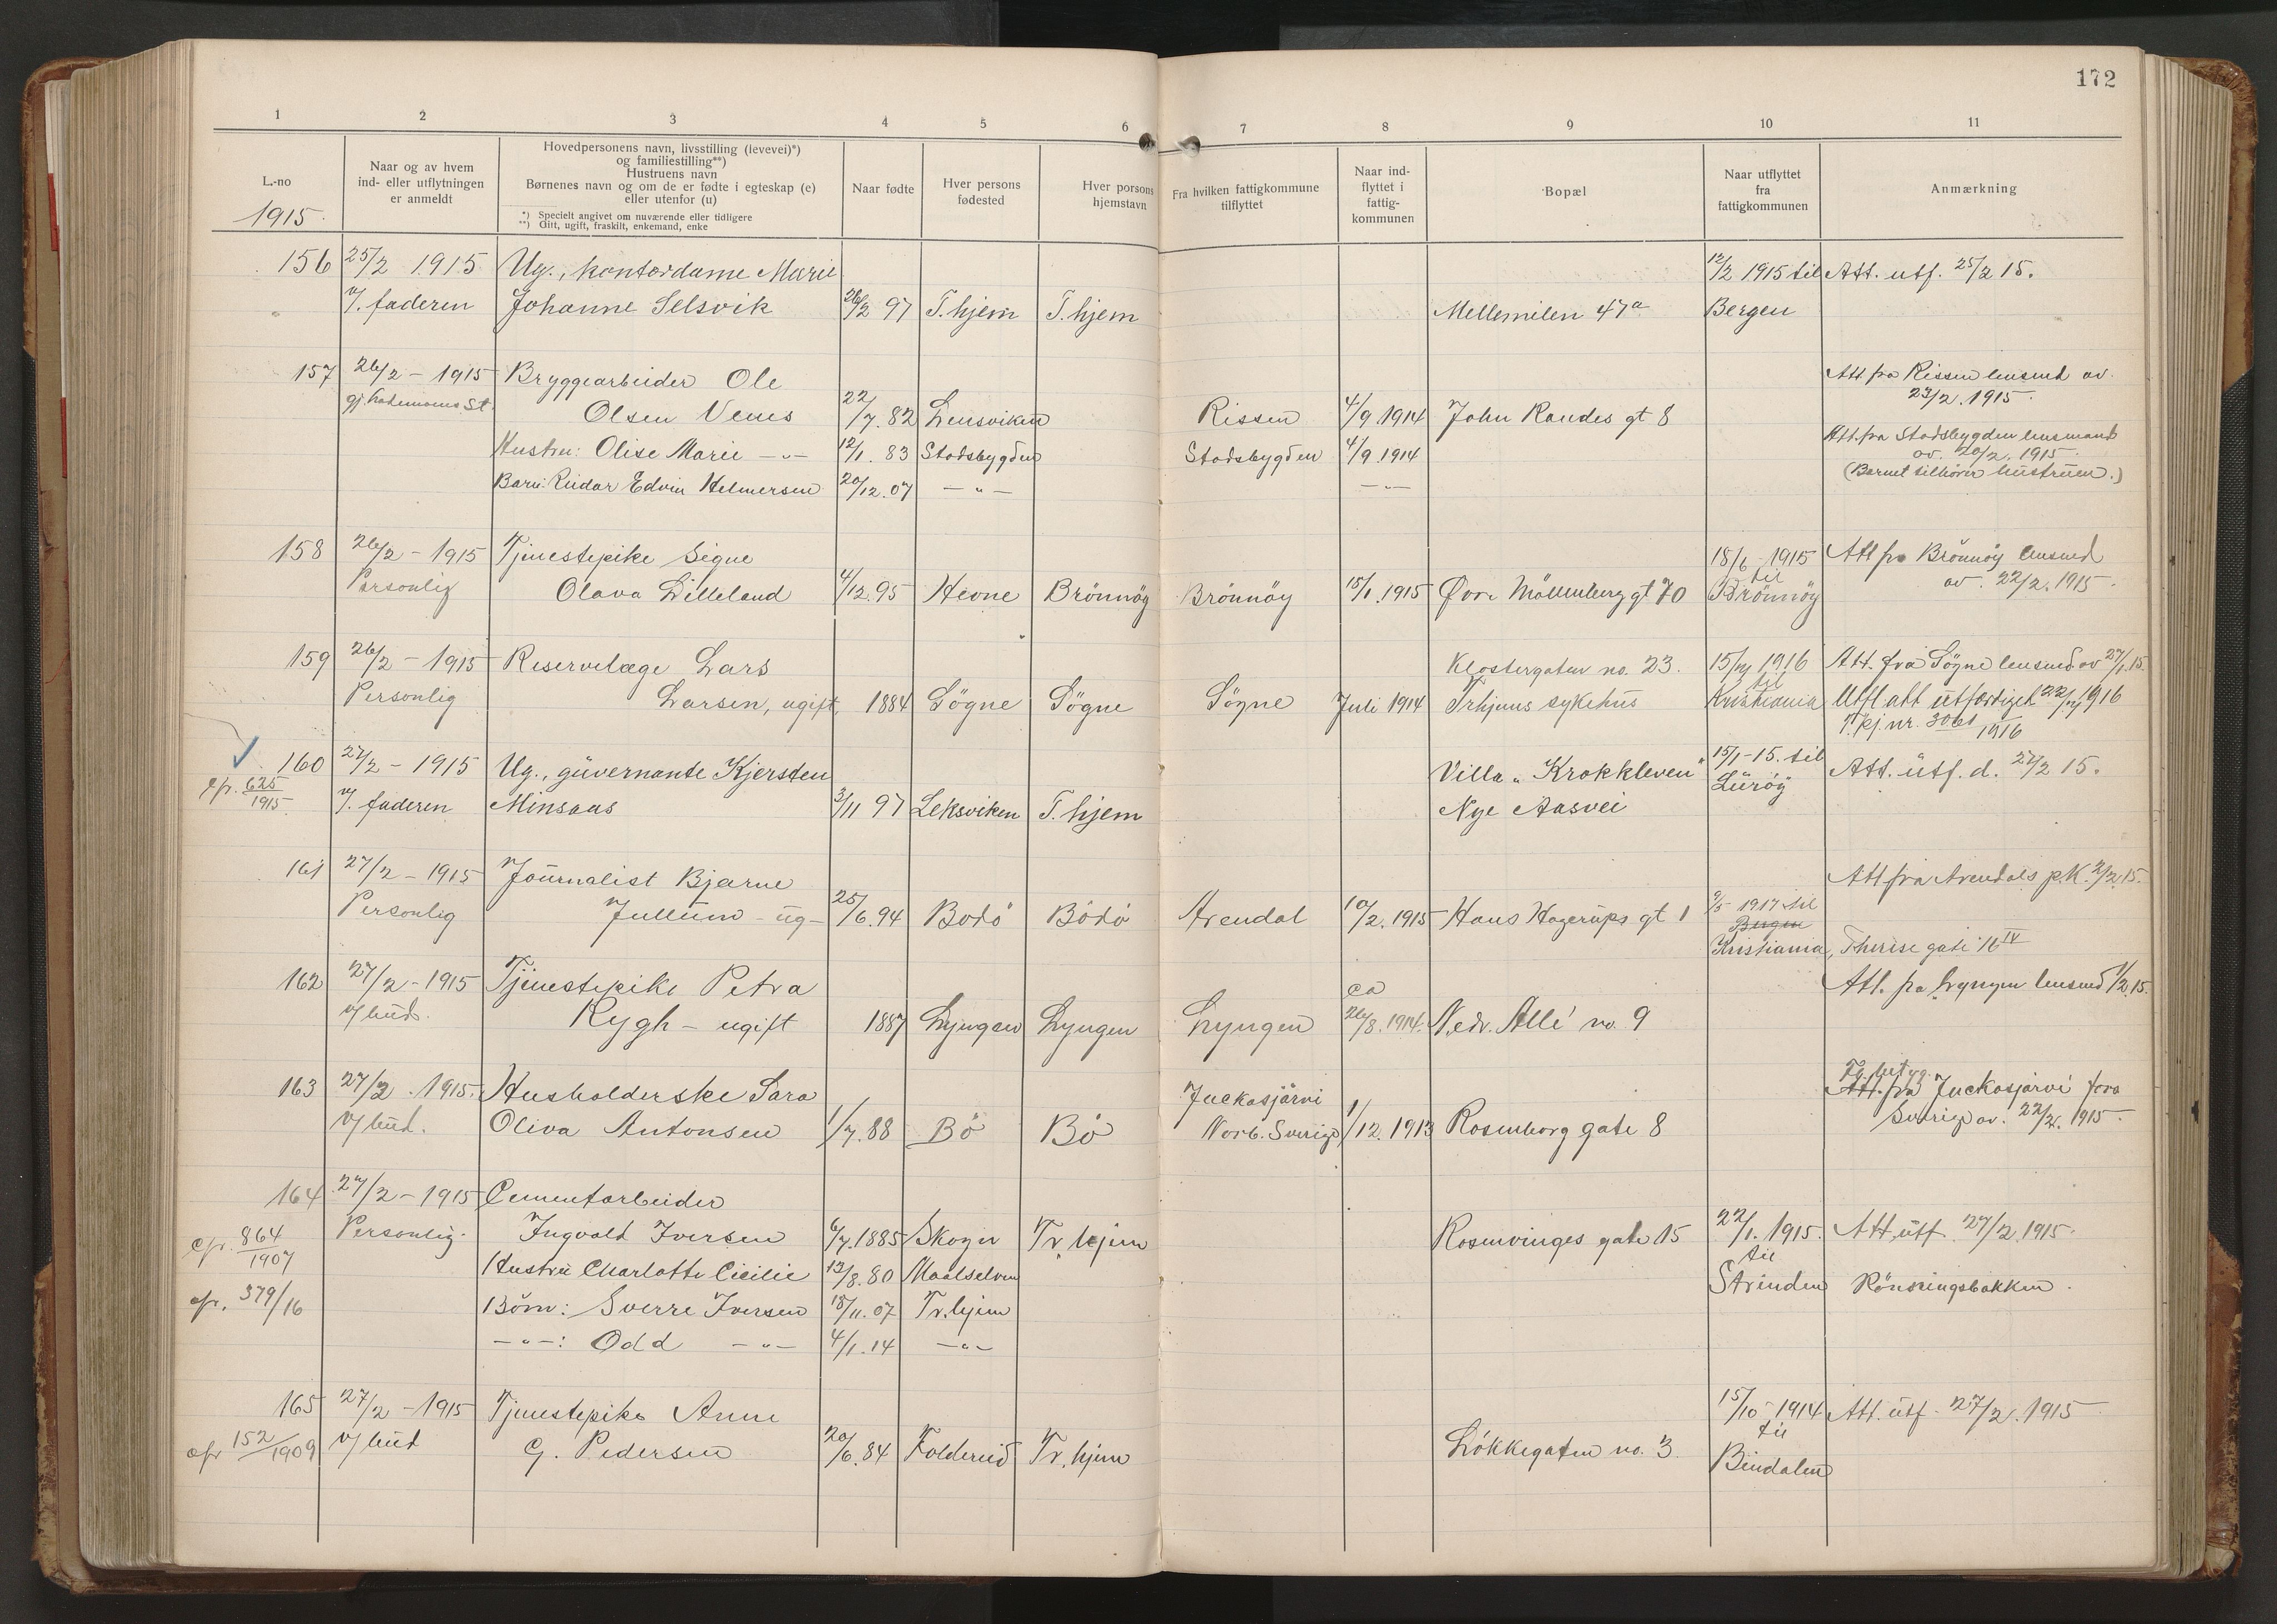 172
1 2 3 4 5 6 7 8 9 10 11
L.-no
1915.
Naar og av hvem
ind- eller utflytningen
er anmeldt
Hovedpersonens navn, livsstilling (levevei)*)
og familiestilling**)
Hustruens navn
Børnenes navn og om de er fødte i egteskap (e)
eller utenfor (u)
*) Specielt angivet om nuværende eller tidligere
**) Gitt, ugift, fraskilt, enkemand, enke
Naar fødte
Hver persons
fødested
Hver porsons
hjemstavn
Fra hvilken fattigkommune
tilflyttet
Naar ind-
flyttet i
fattig-
kommunen
Bopæl
Naar utflyttet
fra
fattigkommunen
Anmærkning
156 25/2 1915 Ug., kontordame Marie 12/2 1915 til Att. utf. 25/2 15.
v/. faderen Johanne Selsvik 26/2 97 T.hjem T.hjem Mellemilen 47a Bergen
157 26/2 - 1915 Bryggearbeider Ole Att. fra Rissen lensmd av
23/2. 1915.
Olsen Venes 22/7. 82 Lensviken Rissen 4/9 1914 John Randes gt 8
Hustru: Olise Marie -"- 12/1. 83 Stadsbygden Stadsbygden 4/9. 1914 Att. fra Stadsbygden lensmand
av. 20/2. 1915.
Barn: Reidar Edvin Helmersen 20/12. 07 -"- -"- (Barnet tilhører hustruen.)
158 26/2 - 1915 Tjenestepike Signe 18/6 - 1915 Att fra Brönnöy lensmd
til av. 22/2. 1915.
Personlig Olava Lilleland 4/12. 95 Hevne Brönnöy Brönnöy 15/1. 1915 Øvre Möllenberg gt 70 Brönnöy
159 26/2 - 1915 Reservelæge Lars Klostergaten no. 23. 15/11 1916 Att. fra Sögne lensmd. av 27/1. 15.
til
Personlig Larsen, ugift, 1884 Sögne Sögne Sögne Juli 1914 Trhjems sykehus Kristiania Utfl att utfærdiget 22/11 1916
T.kj. nr. 3061
1916
160 27/2 - 1915 Ug., guvernante Kjersten Villa „Krokkleven" 15/1 - 15. til Att. utf. d. 27/2 15.
cfr. 625/1915. v/. faderen Minsaas 3/11 97 Leksviken T.hjem Nye Aasvei Luröy
161 27/2 - 1915 Journalist Bjarne Att fra Arendals p.K. 2/2. 15.
Personlig Jullum - ug - 25/6. 94 Bodö Bödö Arendal 10/2. 1915 Hans Hagerups gt 1 9/5 1917 til
Bergen
Kristiania, Therese gate 16 IV
162 27/2 - 1915 Tjenestepike Petra ca Att. fra Lyngen lensmd 1/2. 15.
v/ bud. Rygh - ugift 1887 Lyngen Lyngen Lyngen 26/8. 1914. Nedr. Allé no. 9
163 27/2. 1915. Husholderske Sara Juckasjärvi Fl. betyg.
Att. fra Juckasjärvi fors
v/ bud. Oliva Antonsen 1/7. 88 Bö Bö Norb. Sverige 1/12. 1913 Rosenborg gate 8 Sverige av. 22/2. 1915.
164 27/2 - 1915 Cementarbeider
cfr. 864/1907 Personlig. Ingvald Iversen 6/7. 1885 Skogn Tr.hjem Rosenvinges gate 15 22/1. 1915. Att. utf. 27/2. 1915.
til
Hustru Charlotte Cicilie 12/8. 80 Maalselven Strinden Rönningsbakken.
cfr. 379/16 Börn: Sverre Iversen 18/11. 07 Tr.hjem
-"-: Odd -"- 4/1. 14 -"-
165 27/2 - 1915 Tjenestepike Anne 15/10 - 1914 Att. utf. 27/2. 1915
til
cfr 152/1909 v/ bud G. Pedersen 20/6. 84 Foldereid Tr.hjem Lökkegaten no. 3 Bindalen